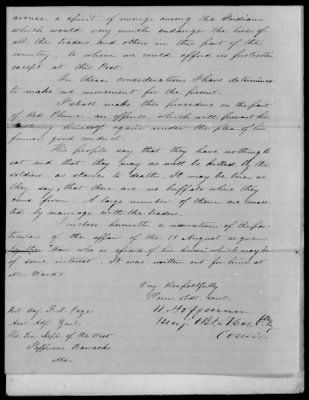 arouse a spirit of revenge among the Indians
which would very much endanger the lives of
all the traders and others in this part of the
country, to whom we could afford no protection
except at this Post.
In these considerations I have determined
to make no movement for the present.
I shall make this procedure on the part
of Red Plume an offence which will prevent his
himself again under the plea of his
former good conduct.
His people say that they have nothing to
eat and that they may as well be killed by the
soldiers as starve to death. It may be true, as
they say, that there are no buffalo where they
came from. A large number of them are connec-
ted by marriage with the traders.
I enclose herewith a narration of the par-
ticulars of the affair of the 19 August as given
by the "Man who is afraid of his horses" which may be
of some interest. It was written out for him at
Mr Ward's.
Very Respectfully
Your Obt Servt
W. Hoffman
Maj. Bt. Lt Col 6th Inf
Comdg
Bvt Maj. F. N. Page
Asst Adj. Genl.
Hd. Qrs Dept of the West
Jefferson Barracks
Mo.